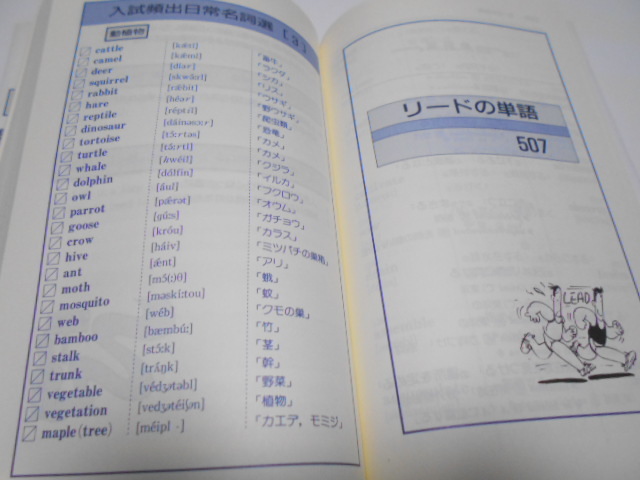 入試頻出日常名詞選〔a〕
動植物
cattle [kǽtl] 「畜牛」
camel [kǽml] 「ラクダ」
deer [diər] 「シカ」
squirrel [skwə́ːrl] 「リス」
rabbit [rǽbit] 「ウサギ」
hare [héər] 「野ウサギ」
reptile [réptil] 「爬虫類」
dinosaur [dáinəsɔːr] 「恐竜」
tortoise [tɔ́ːrtəs] 「カメ」
turtle [tə́ːrtl] 「カメ」
whale [hwéil] 「クジラ」
dolphin [dɑ́lfin] 「イルカ」
owl [ául] 「フクロウ」
parrot [pǽrət] 「オウム」
goose [gúːs] 「ガチョウ」
crow [króu] 「カラス」
hive [háiv] 「ミツバチの巣箱」
ant [ǽnt] 「アリ」
moth [mɔ́(ː)θ] 「蛾」
mosquito [məskíːtou] 「蚊」
web [wéb] 「クモの巣」
bamboo [bæmbúː] 「竹」
stalk [stɔ́ːk] 「茎」
trunk [trʌ́ŋk] 「幹」
vegetable [védʒətəbl] 「野菜」
vegetation [vedʒətéiʃən] 「植物」
maple(tree) [méipl -] 「カエデ，モミジ」
リードの単語
507
LEAD